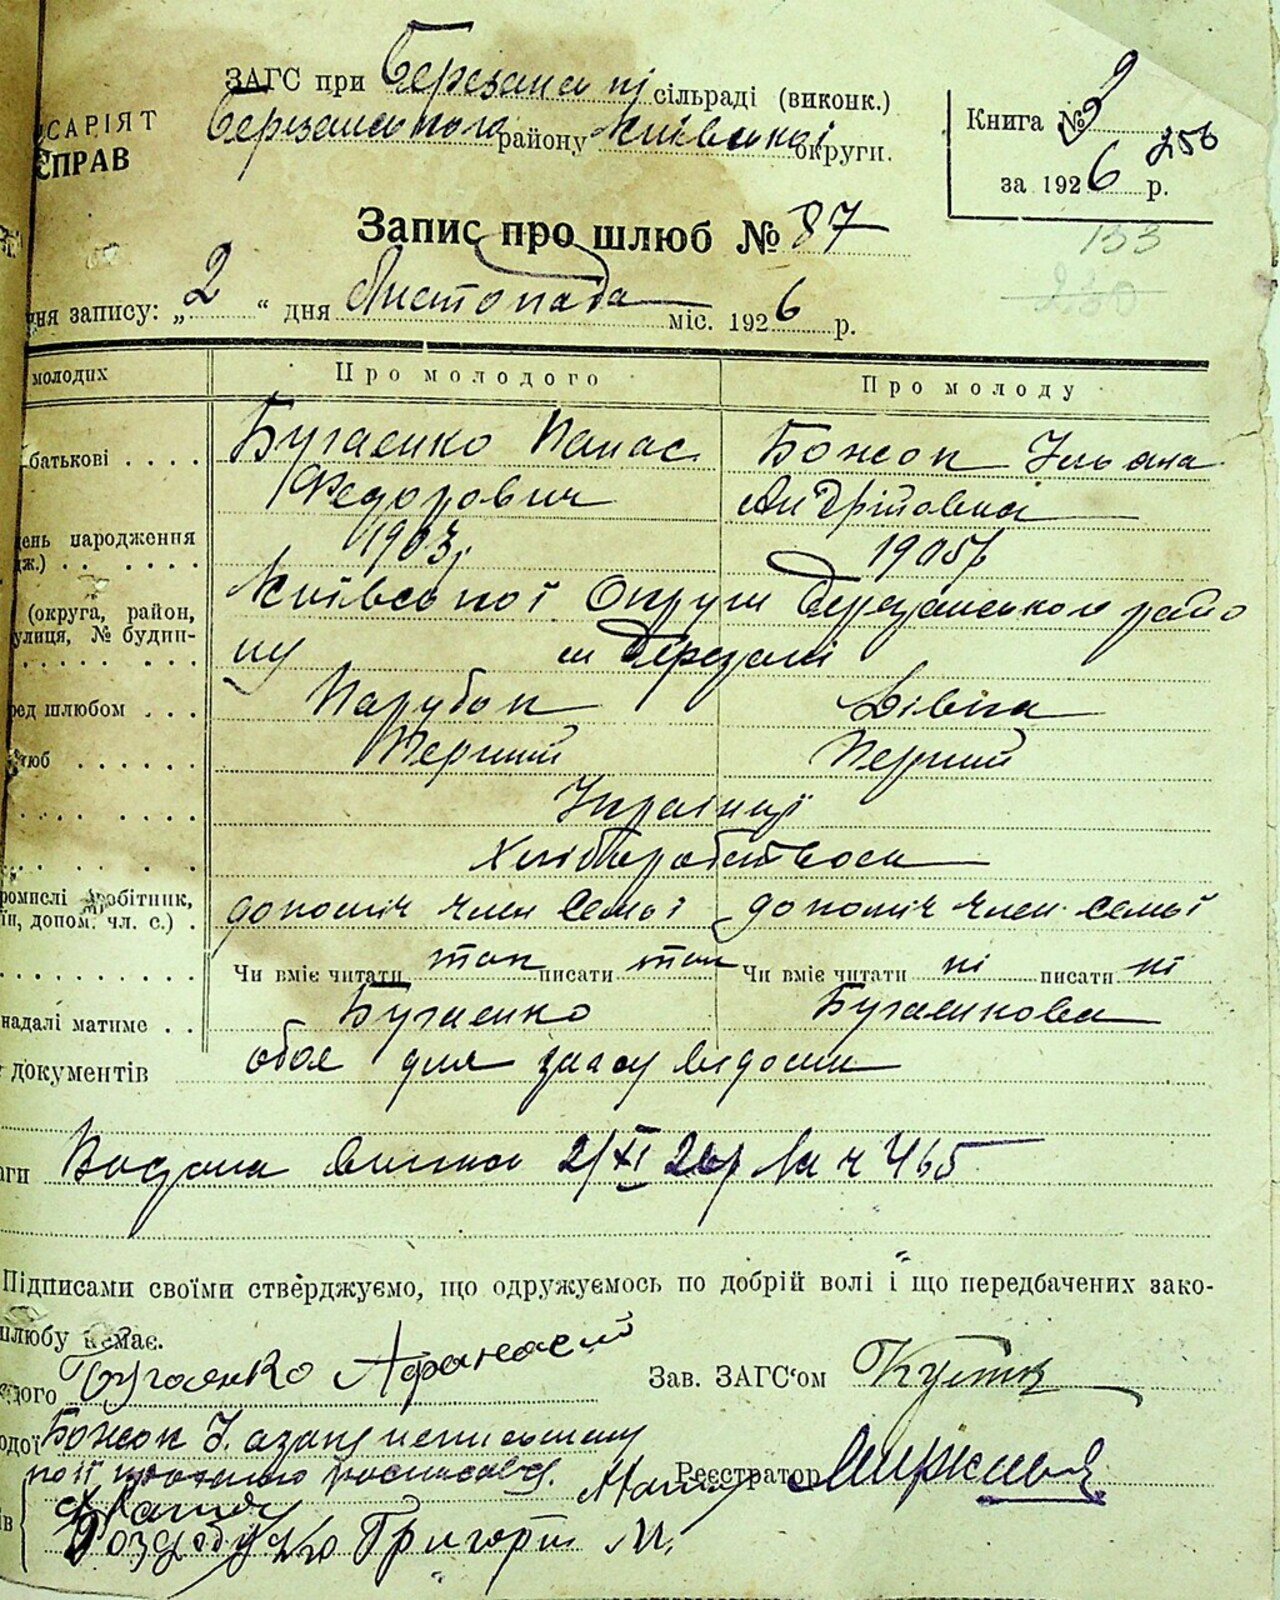 ЗАГС при Березанській сільраді (виконк.)
Березанського району Київської округи.
САРІЯТ
СПРАВ
Книга № 9
256
за 1926 р.
Запис про шлюб № 87
153
230
ня запису: „2“ дня Листопада міс. 1926 р.
молодих Про молодого Про молоду
батькові . . . . Бугаенко Панас Божок Ульяна
Федорович Андрійовна
день народження 1903 р. 1905 р.
дж.) . .
(округа, район, Київської Округи Березанського райо
улиця, № будин-
ну м Березані
ред шлюбом . . . Парубок Дівка
люб Перший Перший
Українці
Хліборобством
ромислі робітник,
їн, допом. чл. с.) . допоміч член семьї допоміч член семьї
Чи вміє читати так писати так Чи вміє читати ні писати ні
надалі матиме . . Бугаенко Бугаенкова
документів обое для загсу відомі
аги Видана виписка 2/XI 26 р за ч 465
Підписами своїми стверджуємо, що одружуємось по добрій волі і що передбачених зако-
шлюбу немає.
дого Бугаенко Афанасий Зав. ЗАГС'ом
одої Божок У. а за неї неписьменну
по її проханню росписався
Реєстратор
ів
Григорій М.